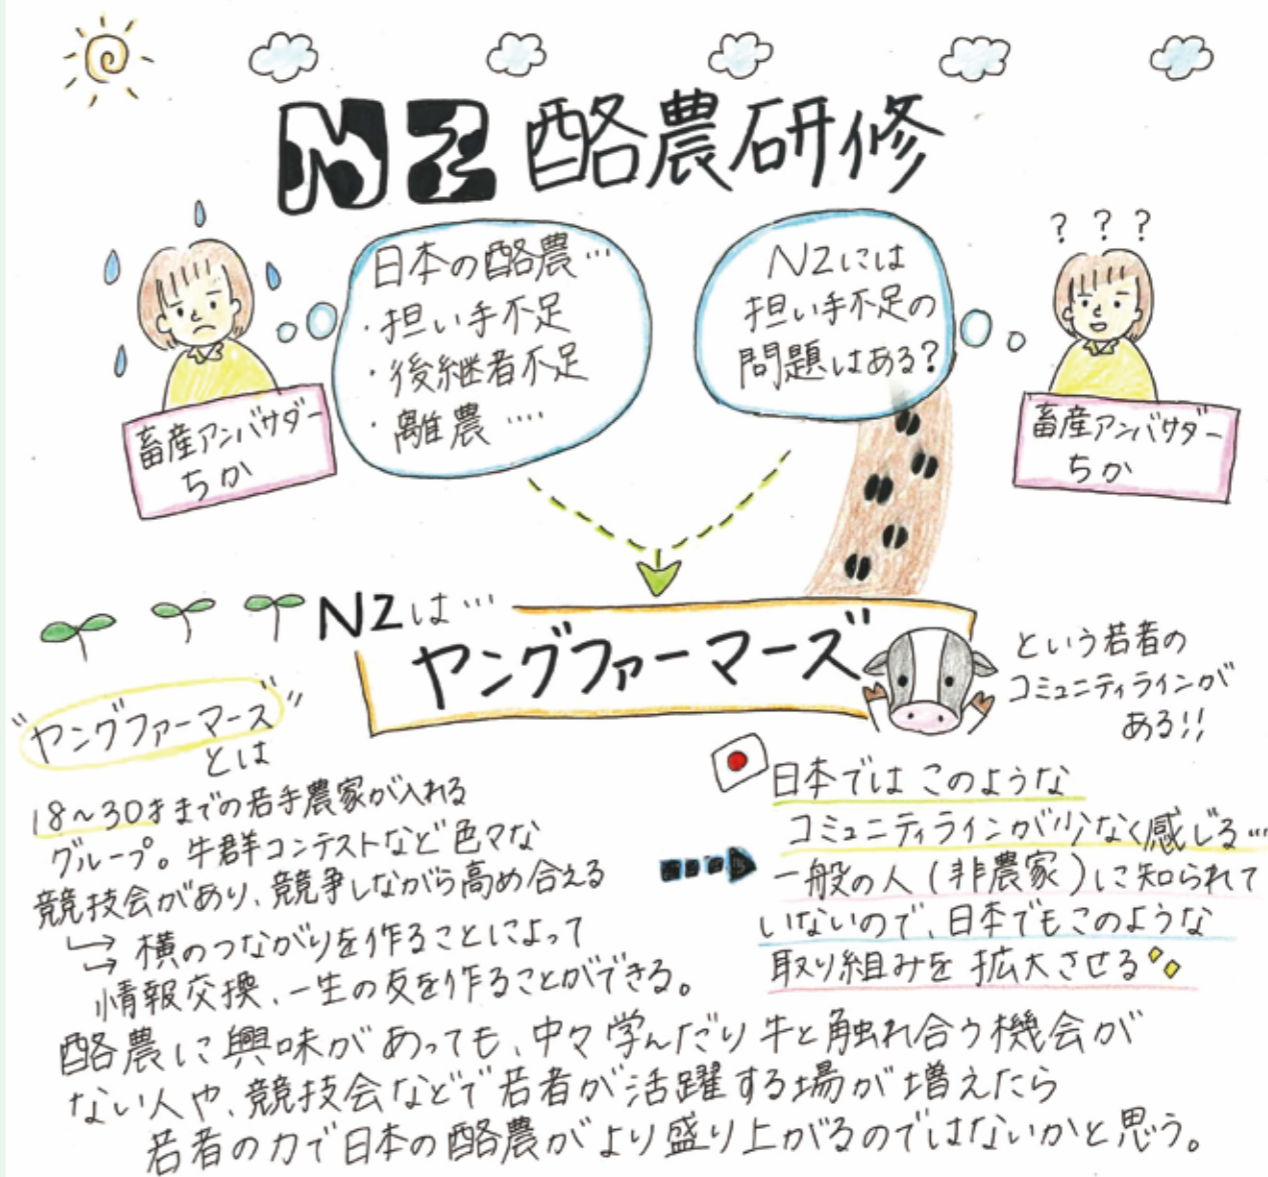 NZ 酪農研修
日本の酪農…
・担い手不足
・後継者不足
・離農 ‥‥
畜産アンバサダー
ちか
NZには
担い手不足の
問題はある?
? ? ?
畜産アンバサダー
ちか
NZは…
ヤングファーマーズ
という若者の
コミュニティラインが
ある!!
"ヤングファーマーズ"
とは
18〜30才までの若手農家が入れる
グループ。牛群コンテストなど色々な
競技会があり、競争しながら高め合える
→ 横のつながりを作ることによって
→ 情報交換、一生の友を作ることができる。
日本では このような
コミュニティラインが少なく感じる…
一般の人(非農家)に知られて
いないので、日本でもこのような
取り組みを 拡大させる
酪農に興味があっても、中々学んだり牛と触れ合う機会が
ない人や、競技会などで若者が活躍する場が増えたら
若者の力で日本の酪農がより盛り上がるのではないかと思う。